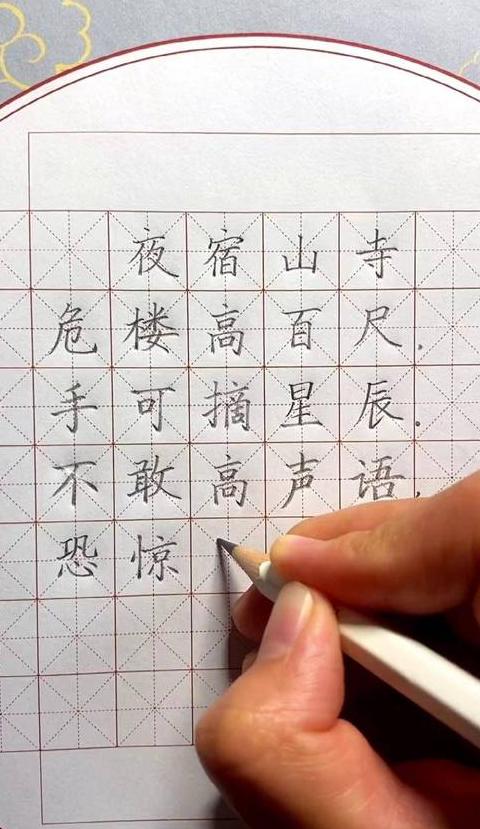 夜宿山寺
危楼高百尺.
手可摘星辰.
不敢高声语.
恐惊